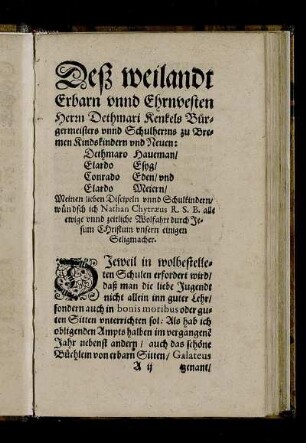 Deß weilandt
Erbarn vnnd Ehrnvesten
Herrn Dethmari Kenkels Bür-
germeisters vnnd Schulherrns zu Bre-
men Kindskindern vnd Neuen:
Dethmaro Haueman/
Elardo Esyg/
Conrado Eden/ vnd
Elardo Meiern/
Meinen lieben Discipeln vnnd Schulkindern/
wündsch ich Nathan Chytræus R. S. B. alle
ewige vnnd zeitliche Wolfahrt durch Je-
sum Christum vnsern einigen
Seligmacher.
DJeweil in wolbestelle-
ten Schulen erfordert wird/
daß man die liebe Jugendt
nicht allein inn guter Lehr/
sondern auch in bonis moribus oder gu-
ten Sitten vnterrichten sol: Als hab ich
obligenden Ampts halben im vergangenē
Jahr nebenst andern/ auch das schöne
Büchlein von erbarn Sitten/ Galateus
A ij genant/